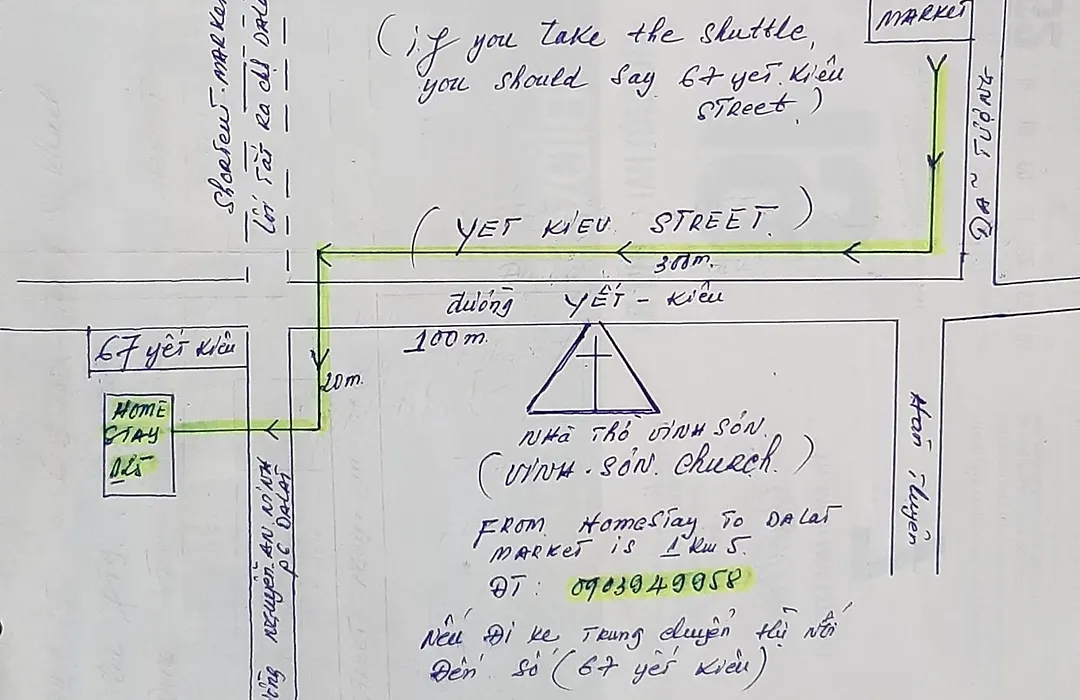 (if you take the shuttle,
you should say 67 yết kiêu
STReet.)
MARKET
ShorTcuT-MARKET
lối TắT RA chợ DALAT
ĐÃ TƯỢNG
(YET KIEU STREET.)
300m.
đường YẾT-Kiêu
67 yết Kiêu
100m.
20m.
HOME
STAY
D25
NHÀ THỜ VINH SƠN.
(VINH-SƠN. Church.)
Hàn Thuyên
NGUYỄN-AN NINH
P6 DALAT
FROM HomeSTay To DALAT
MARKET is 1 Km 5.
ĐT: 0903949958
Nếu Đi xe TRung chuyển thì nói
Đến số (67 yết Kiêu)